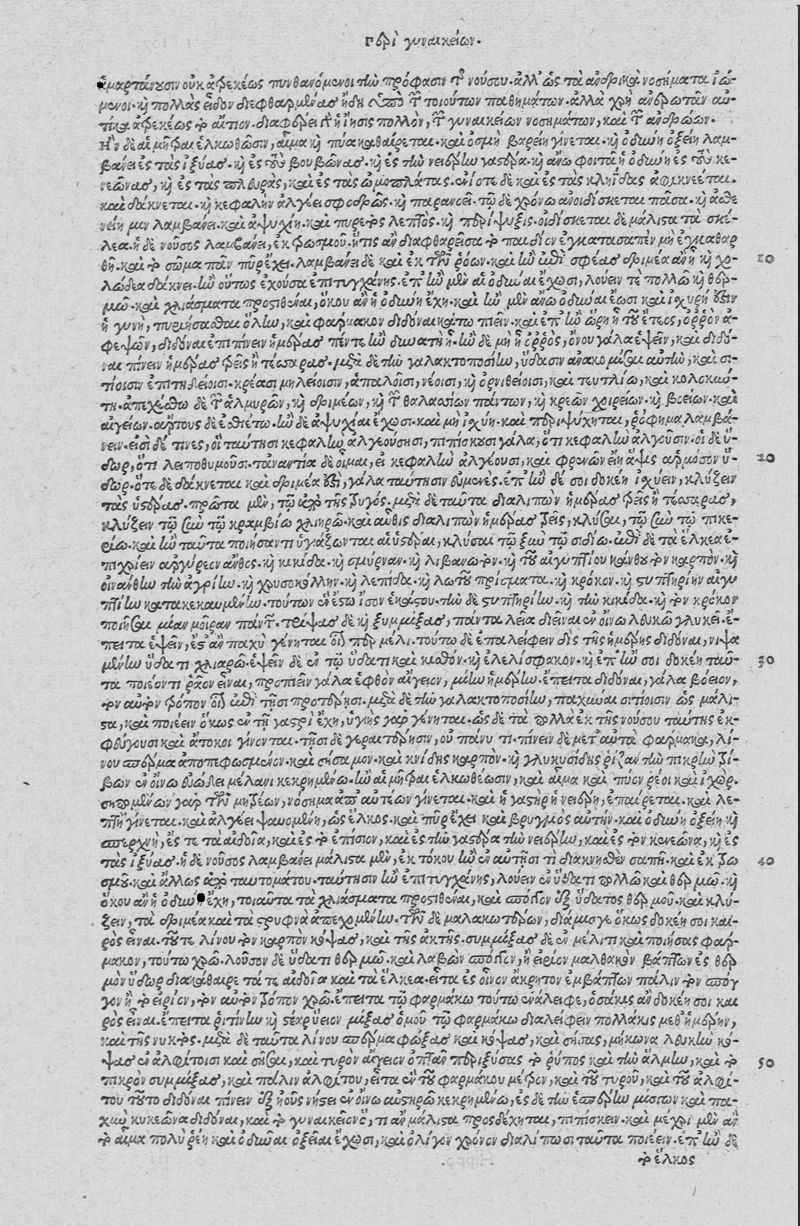 Περὶ γυναικείων.
ἁμαρτάνουσιν οὐκ ἀτρεκέως πυνθανόμενοι τὴν πρόφασιν τῆς νούσου. ἀλλ' ὡς τὰ ἀνδρικὰ νοσήματα ἰώ-
μενοι. καὶ πολλὰς εἶδον διεφθαρμένας ἤδη ὑπὸ τῶν τοιούτων παθημάτων. ἀλλὰ χρὴ ἀνερωτᾶν αὐ-
τίκα ἀτρεκέως τὸ αἴτιον. διαφέρει γὰρ ἡ ἴησις πολλὸν, τῶν γυναικείων νοσημάτων, καὶ τῶν ἀνδρῴων.
Ἢν δὲ αἱ μῆτραι ἑλκωθῶσιν, αἷμα καὶ πύα καθαίρεται. καὶ ὀσμὴ βαρείη γίνεται. καὶ ὀδύνη ὀξείη λαμ-
βάνει ἐς τὰς ἰξύας. καὶ ἐς τοὺς βουβῶνας. καὶ ἐς τὴν νειαίρην γαστέρα. καὶ ἄνω φοιτᾷ ἡ ὀδύνη ἐς τοὺς κε-
νεῶνας, καὶ ἐς τὰς πλευρὰς, καὶ ἐς τὰς ὠμοπλάτας. ἐνίοτε δὲ καὶ ἐς τὰς κληῖδας ἀφικνέεται.
καὶ δάκνεται. καὶ κεφαλὴν ἀλγέει σφοδρῶς. καὶ παρανοεῖ. τῷ δὲ χρόνῳ ἀνοιδίσκεται πᾶσα. καὶ ἀσθε
νείη μιν λαμβάνει. καὶ ἀψυχίη. καὶ πυρετὸς λεπτὸς. καὶ περίψυξις. οἰδίσκεται δὲ μάλιστα τὰ σκέ-
λεα. ἡ δὲ νοῦσος λαμβάνει, ἐκ τρωσμοῦ. ἥτις ἂν διαφθαρεῖσα τὸ παιδίον ἐγκατασαπὲν μὴ ἐγκαθαρ
θῇ. καὶ τὸ σῶμα πᾶν πῦρ ἔχει. λαμβάνει δὲ καὶ ἐκ τῶν ῥόων. καὶ ἢν ἐπὶ σφέας δριμέα ἀνῇ καὶ χο- 10
λώδεα δάκνει. ἢν οὕτως ἐχούσῃ ἐπιτυγχάνῃς. ἐπ' ἢν μὲν αἱ ὀδύναι ἔχωσι, λούειν τε πολλῷ καὶ θερ-
μῷ. καὶ χλιάσματα προστιθέναι, ὅκου ἂν ἡ ὀδύνη ἔχῃ. καὶ ἢν μὲν ἄνω ὀδύναι ἔωσι καὶ ἰσχυρὴ ἔῃ
ἡ γυνὴ, πυριήσασθαι ὅλην, καὶ φάρμακον διδόναι κάτω πιεῖν. καὶ ἐπ' ἢν ὥρη ᾖ τοῦ ἔτεος, ὀρρὸν ἀ-
φεψῶν, διδόναι ἐπιπίνειν ἡμέρας πέντε ἢν δυνατὴ ᾖ. ἢν δὲ μὴ ᾖ ὀρρὸς, ὄνου γάλα ἕψειν, καὶ διδό-
ναι πίνειν ἡμέρας τρεῖς ἢ τέσσαρας. μετὰ δὲ τὴν γαλακτοποσίην, ὕδασιν ἀνακομίζειν αὐτὴν, καὶ σι-
τίοισιν ἐπιτηδείοισι. κρέασι μηλείοισιν, ἁπαλοῖσι, νέοισι, καὶ ὀρνιθείοισι, καὶ τευτλίῳ, καὶ κολοκύν-
τῃ. ἀπεχέσθω δὲ τῶν ἁλμυρῶν, καὶ δριμέων, καὶ τῶν θαλασσίων πάντων, καὶ κρεῶν χοιρείων. καὶ βοείων. καὶ
αἰγείων. ἄρτους δὲ ἐσθιέτω. ἢν δὲ ἀψυχίαι ἔχωσι. καὶ μὴ ἰσχύῃ. καὶ περιψύχηται, ῥόφημα λαμβά-
νειν. εἰσὶ δέ τινες, οἳ ταύτῃσι κεφαλὴν ἀλγεούσῃσι, πιπίσκουσι γάλα, ὅτι κεφαλὴν ἀλγοῦσιν. οἱ δὲ ὕ-
δωρ, ὅτι λειποθυμοῦσι. τἀναντία δὲ οἶμαι, εἰ κεφαλὴν ἀλγέουσι, καὶ φρενῶν ἔῃ ἅψις ἁρμόσον ὕ- 20
δωρ. ὅτε δὲ δάκνεται καὶ δριμέα ἔῃ, γάλα ταύτῃσιν. ἐπ' ἢν δέ σοι δοκέῃ ἰσχύειν, κλύζειν
τὰς ὑστέρας. πρῶτα μὲν, τῷ ἀπὸ τῆς τρυγός. μετὰ δὲ ταῦτα διαλιπὼν ἡμέρας τρεῖς ἢ τέσσαρας,
κλύζειν τῷ σὺν τῷ κραμβίῳ χλιηρῷ. καὶ αὖθις διαλιπὼν ἡμέρας τρεῖς, κλύσαι, τῷ σὺν τῷ πικε-
ρίῳ. καὶ ἢν ταῦτα ποιήσαντι ὑγιάζωνται αἱ ὑστέραι, κλύσαι τῷ ξὺν τῷ σιδίῳ. ἐπὶ δὲ τὰ ἕλκεα ἐ-
πιχρίειν ἀργύρεον ἄνθος. καὶ κικίδα. καὶ σμύρναν. καὶ λιβανωτόν. καὶ τοῦ αἰγυπτίου κάνθου τὸν καρπόν. καὶ
οἰνάνθην τὴν ἀγρίην. καὶ χρυσοκόλλην. καὶ λεπίδα. καὶ λωτοῦ πρίσματα. καὶ κρόκον. καὶ στυπτηρίην αἰγυ
πτίην κατακεκαυμένην. τούτων ἔστω ἴσον ἑκάστου. τὴν δὲ στυπτηρίην. καὶ τὴν κικίδα. καὶ τὸν κρόκον
ποιῆσαι μίαν μοῖραν πάντων. τρίψας δὲ καὶ ξυμμίξας, πάντα λεῖα διεῖναι ἐν οἴνῳ λευκῷ γλυκεῖ. ἔ-
πειτα ἑψεῖν, ἔστ' ἂν παχὺ γένηται οἷόν περ μέλι. τούτῳ δὲ ἐπαλείφειν δὶς τῆς ἡμέρης διδόναι, νιψα
μένην ὕδατι χλιαρῷ. ἑψεῖν δὲ ἐν τῷ ὕδατι καὶ κισσόν. καὶ ἐλελίσφακον. καὶ ἐπ' ἢν σοι δοκέῃ ταῦ- 30
τα ποιέοντι ῥᾷον εἶναι, προπιεῖν γάλα ἑφθὸν αἴγειον, μίην ἡμέρην. ἔπειτα διδόναι, γάλα βόειον,
τὸν αὐτὸν τρόπον οἷον ἐπὶ τῇσι προτέρῃσι. μετὰ δὲ τὴν γαλακτοποσίην, παχῦναι σιτίοισιν ὡς μάλι-
στα, καὶ ποιέειν ὅκως ἐν τῇ γαστρὶ ἔχῃ, ὑγιὴς γὰρ γίνεται. ὡς δὲ τὰ πολλὰ ἐκ τῆς νούσου ταύτης ἐκ-
φεύγουσι καὶ ἄτοκοι γίνονται. τῇσι δὲ γεραιτέρῃσιν, οὐ πάνυ τι. πίνειν δὲ μετ' αὐτὰ φάρμακα, λί-
νου σπέρμα ἀποπεφωσμένον. καὶ σήσαμον. καὶ κνίδης καρπόν. καὶ γλυκυσίδης ῥίζαν τὴν πικρὴν τρί-
βων ἐν οἴνῳ εὐώδει μέλανι κεκρημένῳ. ἢν αἱ μῆτραι ἑλκωθέωσιν, καὶ αἷμα καὶ πύον ῥέοι καὶ ἰχώρ.
σηπομένων γὰρ τῶν μητρέων, νόσημα ἀπ' αὐτέων γίνεται. καὶ ἡ γαστὴρ ἡ νειαίρη, ἐπαίρεται. καὶ λε-
πτὴ γίνεται. καὶ ἀλγέει ψαυομένη, ὡς ἕλκος. καὶ πῦρ ἔχει καὶ βρυγμὸς αὐτήν. καὶ ὀδύνη ὀξείη καὶ
σπερχνὴ, ἔς τε τὰ αἰδοῖα, καὶ ἐς τὸ ἐπίσιον, καὶ ἐς τὴν γαστέρα τὴν νειαίρην, καὶ ἐς τὸν κενεῶνα, καὶ ἐς
τὰς ἰξύας. ἡ δὲ νοῦσος λαμβάνει μάλιστα μὲν, ἐκ τόκου ἢν ἐν αὐτῇσί τι διακναισθὲν σαπῇ. καὶ ἐκ τρω 40
σμοῦ. καὶ ἄλλως ἀπὸ ταὐτομάτου. ταύτῃσιν ἢν ἐπιτυγχάνῃς, λούειν ἐν ὕδατι πολλῷ καὶ θερμῷ. καὶ
ὅκου ἂν ἡ ὀδύνη ἔχῃ, τοιαῦτα τὰ χλιάσματα προστιθέναι, καὶ σπόγγον ἐξ ὕδατος θερμοῦ. καὶ κλύ-
ζειν, τὰ δριμέα καὶ τὰ στρυφνὰ ἀπεχομένην. τῶν δὲ μαλακωτέρων, διάμισγε ὅκως δοκέῃ σοι και-
ρὸς εἶναι. τοῦ τε λίνου τὸν καρπὸν κόψας, καὶ τῆς ἀκτῆς. συμμίξας δὲ ἐν μέλιτι καὶ ποιήσας φάρ-
μακον, τούτῳ χρῶ. λοῦσον δὲ ὕδατι θερμῷ. καὶ λαβὼν σπόγγον, ἢ εἴριον μαλθακὸν βάπτων ἐς θερ
μὸν ὕδωρ διακάθαιρε τά τε αἰδοῖα καὶ τὰ ἕλκεα. εἶτα ἐς οἶνον ἄκρητον ἐμβάπτων πάλιν τὸν σπόγ
γον ἢ τὸ εἴριον, τὸν αὐτὸν τρόπον χρῶ. ἔπειτα τῷ φαρμάκῳ τούτῳ ἐνάλειφε, ὁσάκις ἂν δοκέῃ σοι και
ρὸς εἶναι. ἔπειτα ῥητίνην καὶ στέαρ ὕειον μίξας ὁμοῦ τῷ φαρμάκῳ διαλείφειν πολλάκις μεθ' ἡμέρην,
καὶ τῆς νυκτός. μετὰ δὲ ταῦτα λίνου σπέρμα φώξας καὶ κόψας, καὶ σήσας, μήκωνα λευκὴν κό-
ψας ἐν ἀλφίτοισι καὶ σῆσαι, καὶ τυρὸν αἴγειον ὀπτᾶν περιξύσας τὸ ῥύπος καὶ τὴν ἅλμην, καὶ τὸ 50
πικρὸν συμμίξας, καὶ πάλιν ἀλφίτου, εἶτα ἓν τοῦ φαρμάκου μέρος, καὶ τοῦ τυροῦ, καὶ τοῦ ἀλφί-
του τοῦτο διδόναι πίνειν ἐξ ἠοῦς νήστει ἐν οἴνῳ αὐστηρῷ κεκρημένῳ, ἐς δὲ τὴν ἑσπέρην μίσγων καὶ πα-
χὺν κυκεῶνα διδόναι, καὶ τὸ γυναικεῖον ὃ, τι ἂν μάλιστα προσδέχηται, πιπίσκειν. καὶ μέχρι μὲν ἂν
τὸ αἷμα πολὺ ῥέῃ καὶ ὀδύναι ὀξεῖαι ἔχωσι, καὶ ὀλίγον χρόνον διαλίπωσι ταῦτα ποιέειν. ἐπ' ἢν δὲ
τὸ ἕλκος